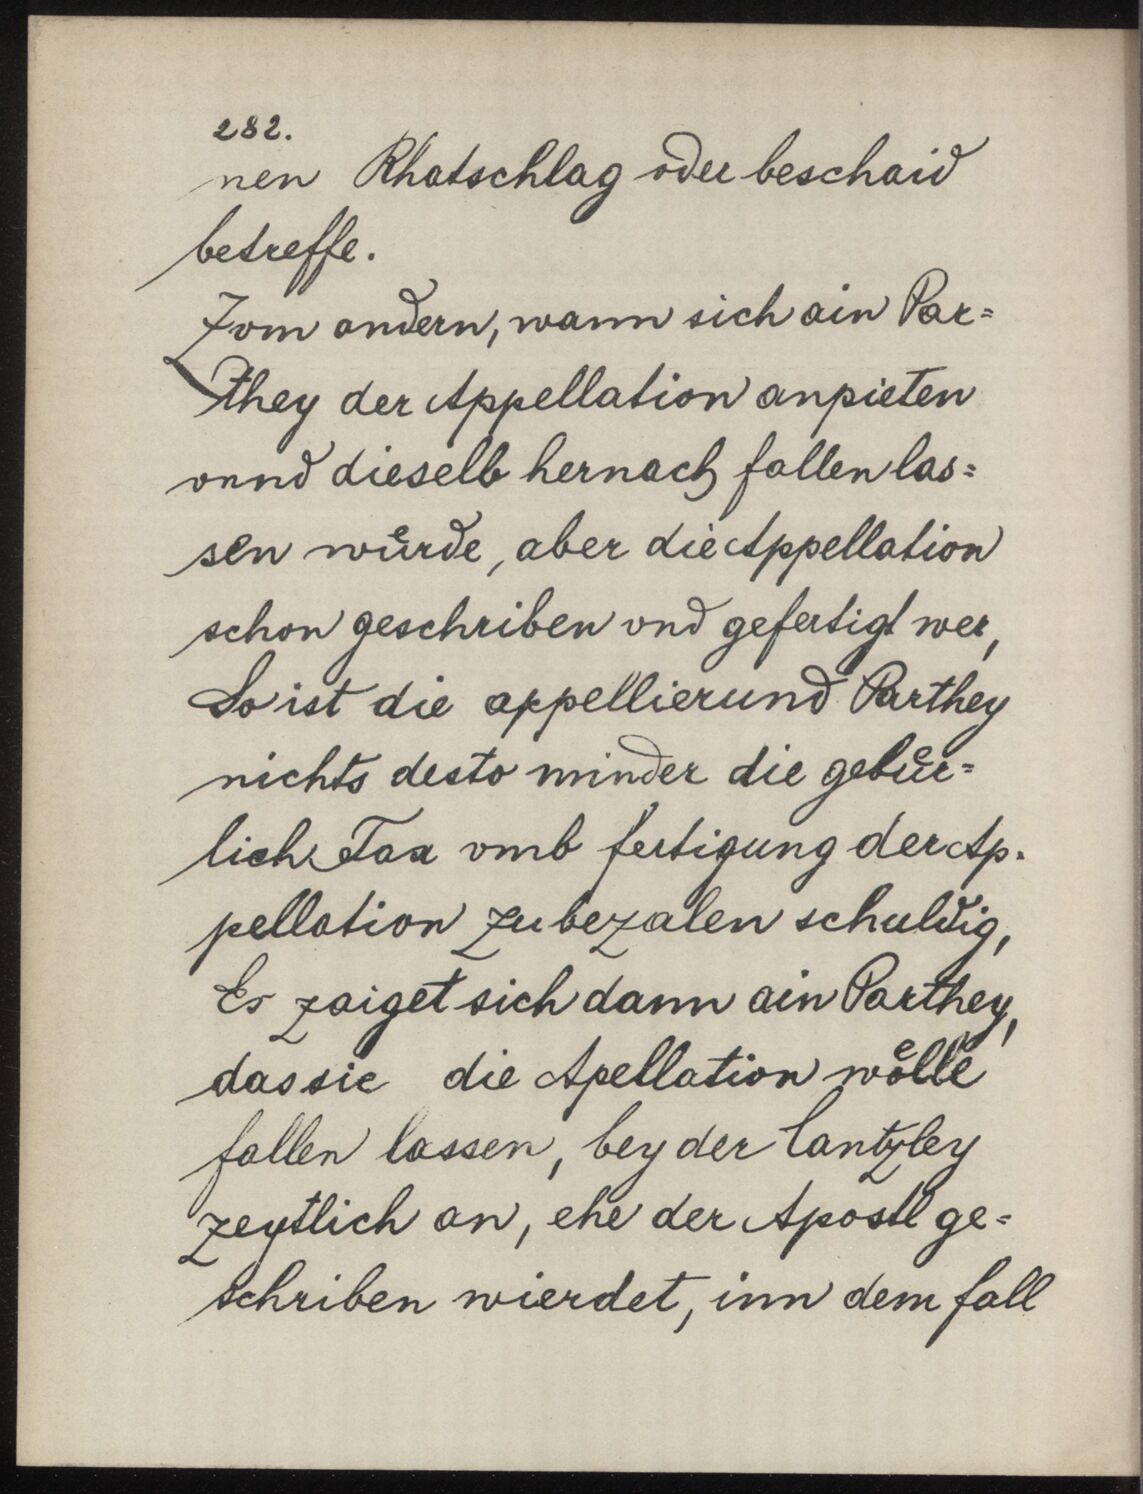 282.
nen Rhatschlag oder beschaid
betreffe.
Zom andern, wann sich ain Par=
they der Appellation anpieten
vnnd dieselb hernach fallen las=
sen wůrde, aber die Appellation
schon geschriben vnd gefertigt wer,
So ist die appellierund Parthey
nichts desto minder die gebůr=
lich Tax vmb fertigung der Ap=
pellation zu bezalen schuldig,
Es zaiget sich dann ain Parthey,
das sie die Apellation wölle
fallen lassen, bey der Cantzley
zeytlich an, ehe der Apostl ge=
schriben wierdet, inn dem fall